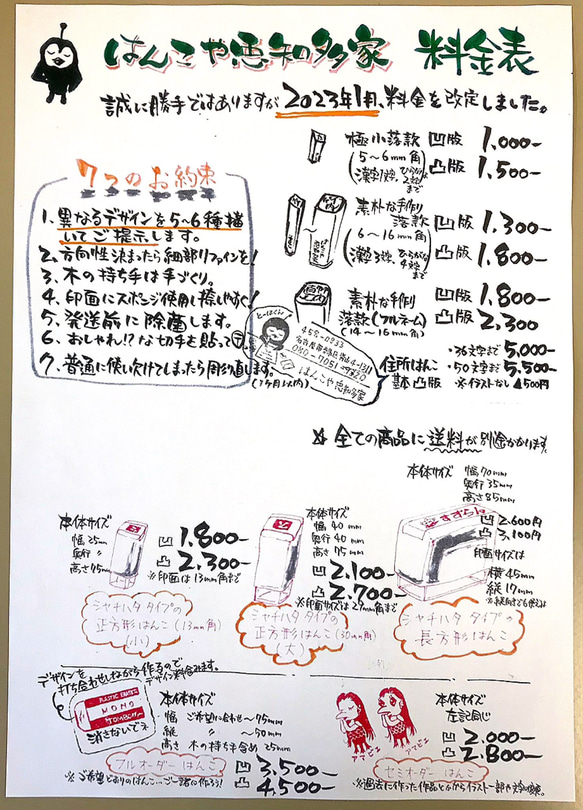 はんこや恵知多家 料金表
誠に勝手ではありますが2023年1月、料金を改定しました。
極小落款 凹版 1,000-
(5~6mm角 凸版 1,500-
漢字1文字、ひらがな2文字まで)
7つのお約束
1、異なるデザインを5~6種描
いてご提示します。
2、方向性決まったら細部リファインを!
3、木の持ち手は手づくり。
4、印面にスポンジ使用し捺しやすく!
5、発送前に除菌します。
6、おしゃれ!?な切手を貼って〒
7、普通に使い欠けてしまったら彫り直します。
(1ヶ月以内)
素朴な手作り
落款 凹版 1,300-
(6~16mm角 凸版 1,800-
漢字3文字、ひらがな4文字まで)
素朴な手作り 凹版 1,800-
落款(フルネーム) 凸版 2,300
(14~16mm角)
はんこや恵知多家
住所はんこ ・36文字まで 5,000-
基本凸版 ・50文字まで 5,500-
※イラストなし 4500円
全ての商品に送料が別途かかります。
本体サイズ 幅70mm
奥行35mm
高さ85mm
すずらん
凹 2,600円
凸 3,100円
印面サイズは
横45mm
縦17mm
シャチハタタイプの
長方形はんこ
本体サイズ
幅25mm
奥行〃
凹 1,800-
凸 2,300-
※印面は13mm角まで
シャチハタタイプの
正方形はんこ(13mm角)
(小)
本体サイズ
幅40mm
奥行40mm
凹 2,100-
凸 2,700-
シャチハタタイプの
正方形はんこ(30mm角)
(大)
デザインを
打ち合わせしながら作るので
デザイン料含みます。
PLASTIC ERASER
MONO
TOMBOW
消さないでネ
本体サイズ
幅 ご希望に合わせ~75mm
縦 〃 ~50mm
高さ 木の持ち手含め25mm
フルオーダーはんこ
凹 3,500-
凸 4,500-
※ご希望どおりのはんこ…ご一緒に作ろう!
アマビエ
アマビエ
本体サイズ
左に同じ
凹 2,000-
凸 2,800-
セミオーダーはんこ